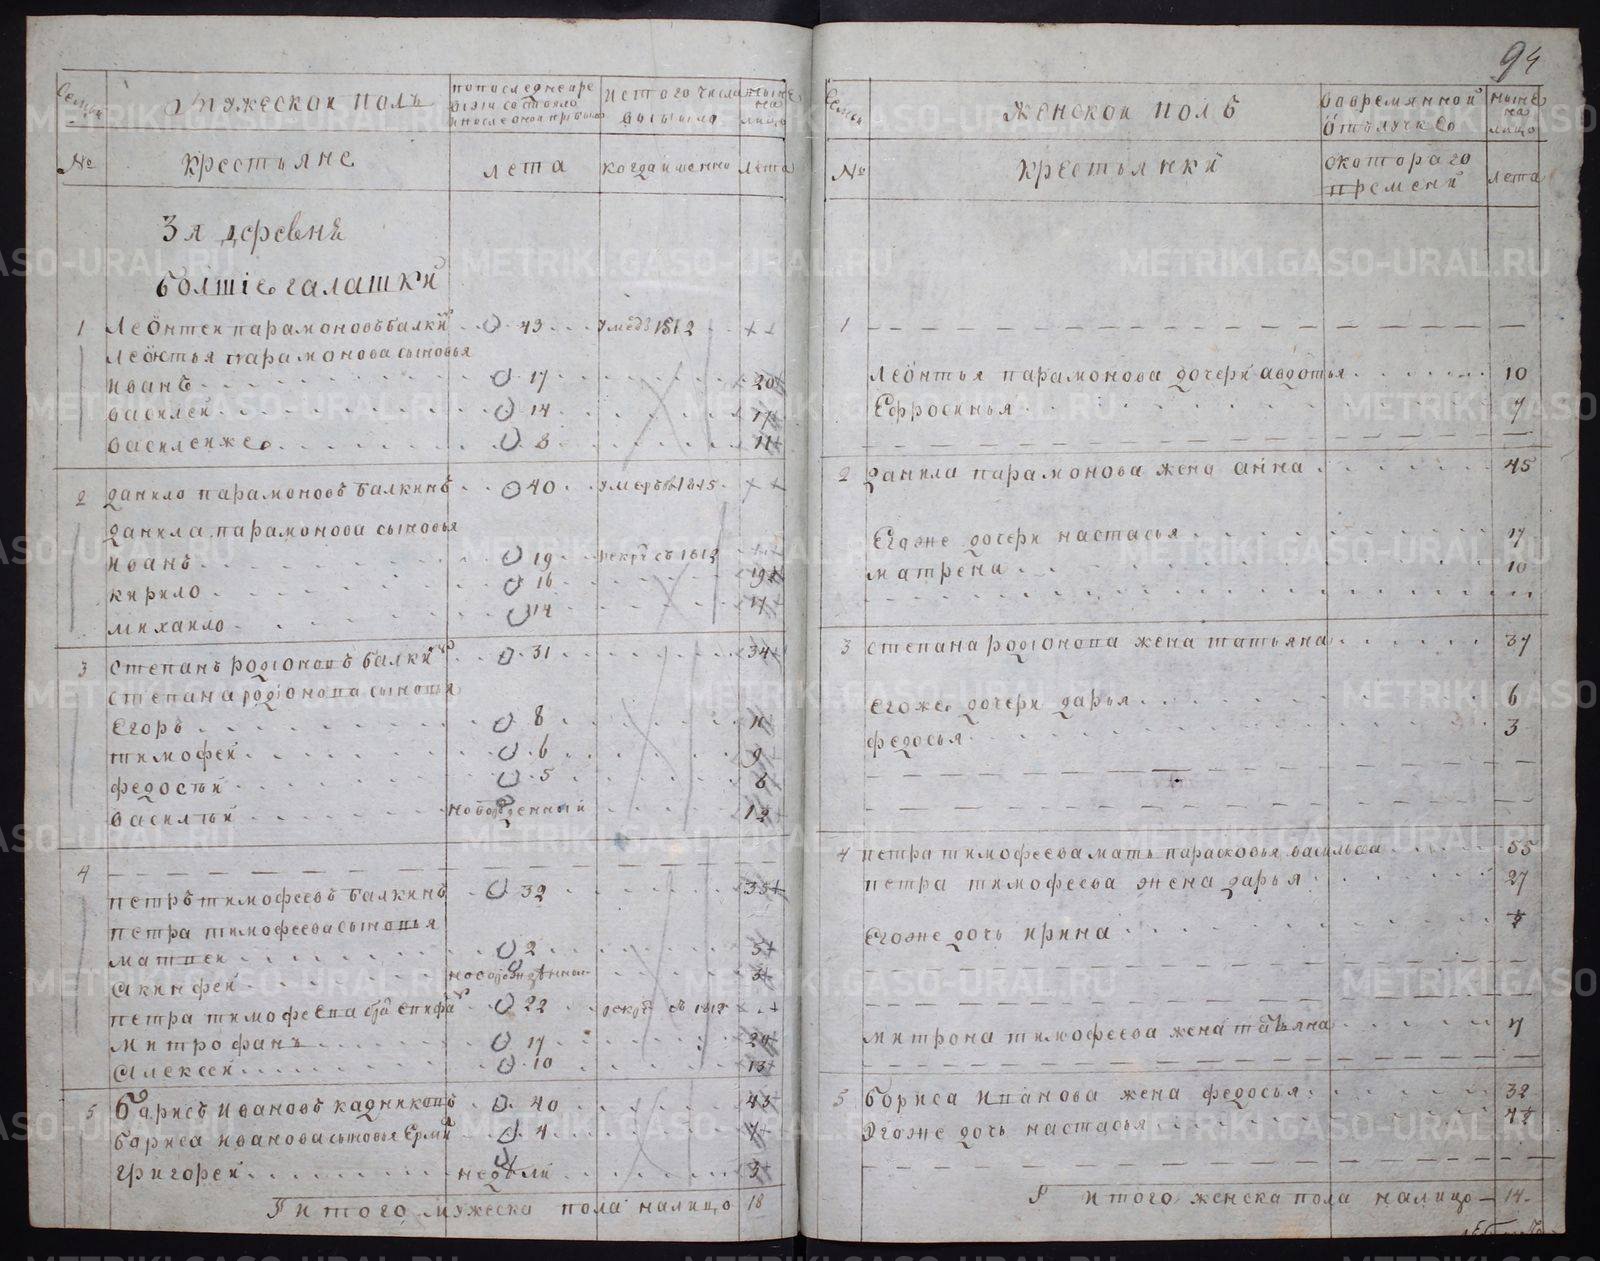 94
Семьи
Мужеской полъ
Изтого числа
выбыло
ныне
на
лицо
№
Крестьяне
лета
когда имянно
лета
3я деревня
болшіе галашки
1 Леонтеи парамоновъ балкинъ 43 умеръ 1812
Леонтья парамонова сыновья
Иванъ 17 20
Василеи 14 17
Василеиже 8 11
2 Данило парамоновъ балкинъ 40 умеръ 1815
Данила парамонова сыновья
Иванъ 19 рекру съ 1812
Кирило 16 19
Михаило 14 17
3 Степанъ родіоновъ балкинъ 31 34
Степана родіонова сыновья
Егоръ 8 11
Тимофеи 6 9
Федостеи 5 8
Василеи новорожденный 1 2
4
петръ тимофеевъ балкинъ 32 35
петра тимофеева сыновья
матвеи 2 5
Акинфеи новорожденнои 3
петра тимофеева 22 рекру съ 1812
митрофанъ 17 20
Алексеи 10 13
5 Борисъ Ивановъ кадниковъ 40 43
Бориса Иванова сыновья 4 7
григореи недели 3
Итого мужеска пола налицо 18
Семьи
женскои полъ
Вовремяннои
отлучке
ныне
на
лицо
№
Крестьянки
скотораго
времени
лета
1
Леонтья парамонова дочери авдотья 10
Ефросинья 7
2 Данила парамонова жена анна 45
Егоже дочери настасья 17
матрена 10
3 Степана родіонова жена татьяна 37
Егоже дочери дарья 6
федосья 3
4 петра тимофеева мать парасковья васильева 55
петра тимофеева жена дарья 27
Егоже дочь ирина
митрона тимофеева жена татьяна
5 бориса Иванова жена федосья 32
Егоже дочь настасья
Итого женска пола налицо 14
METRIKI.GASO-URAL.RU